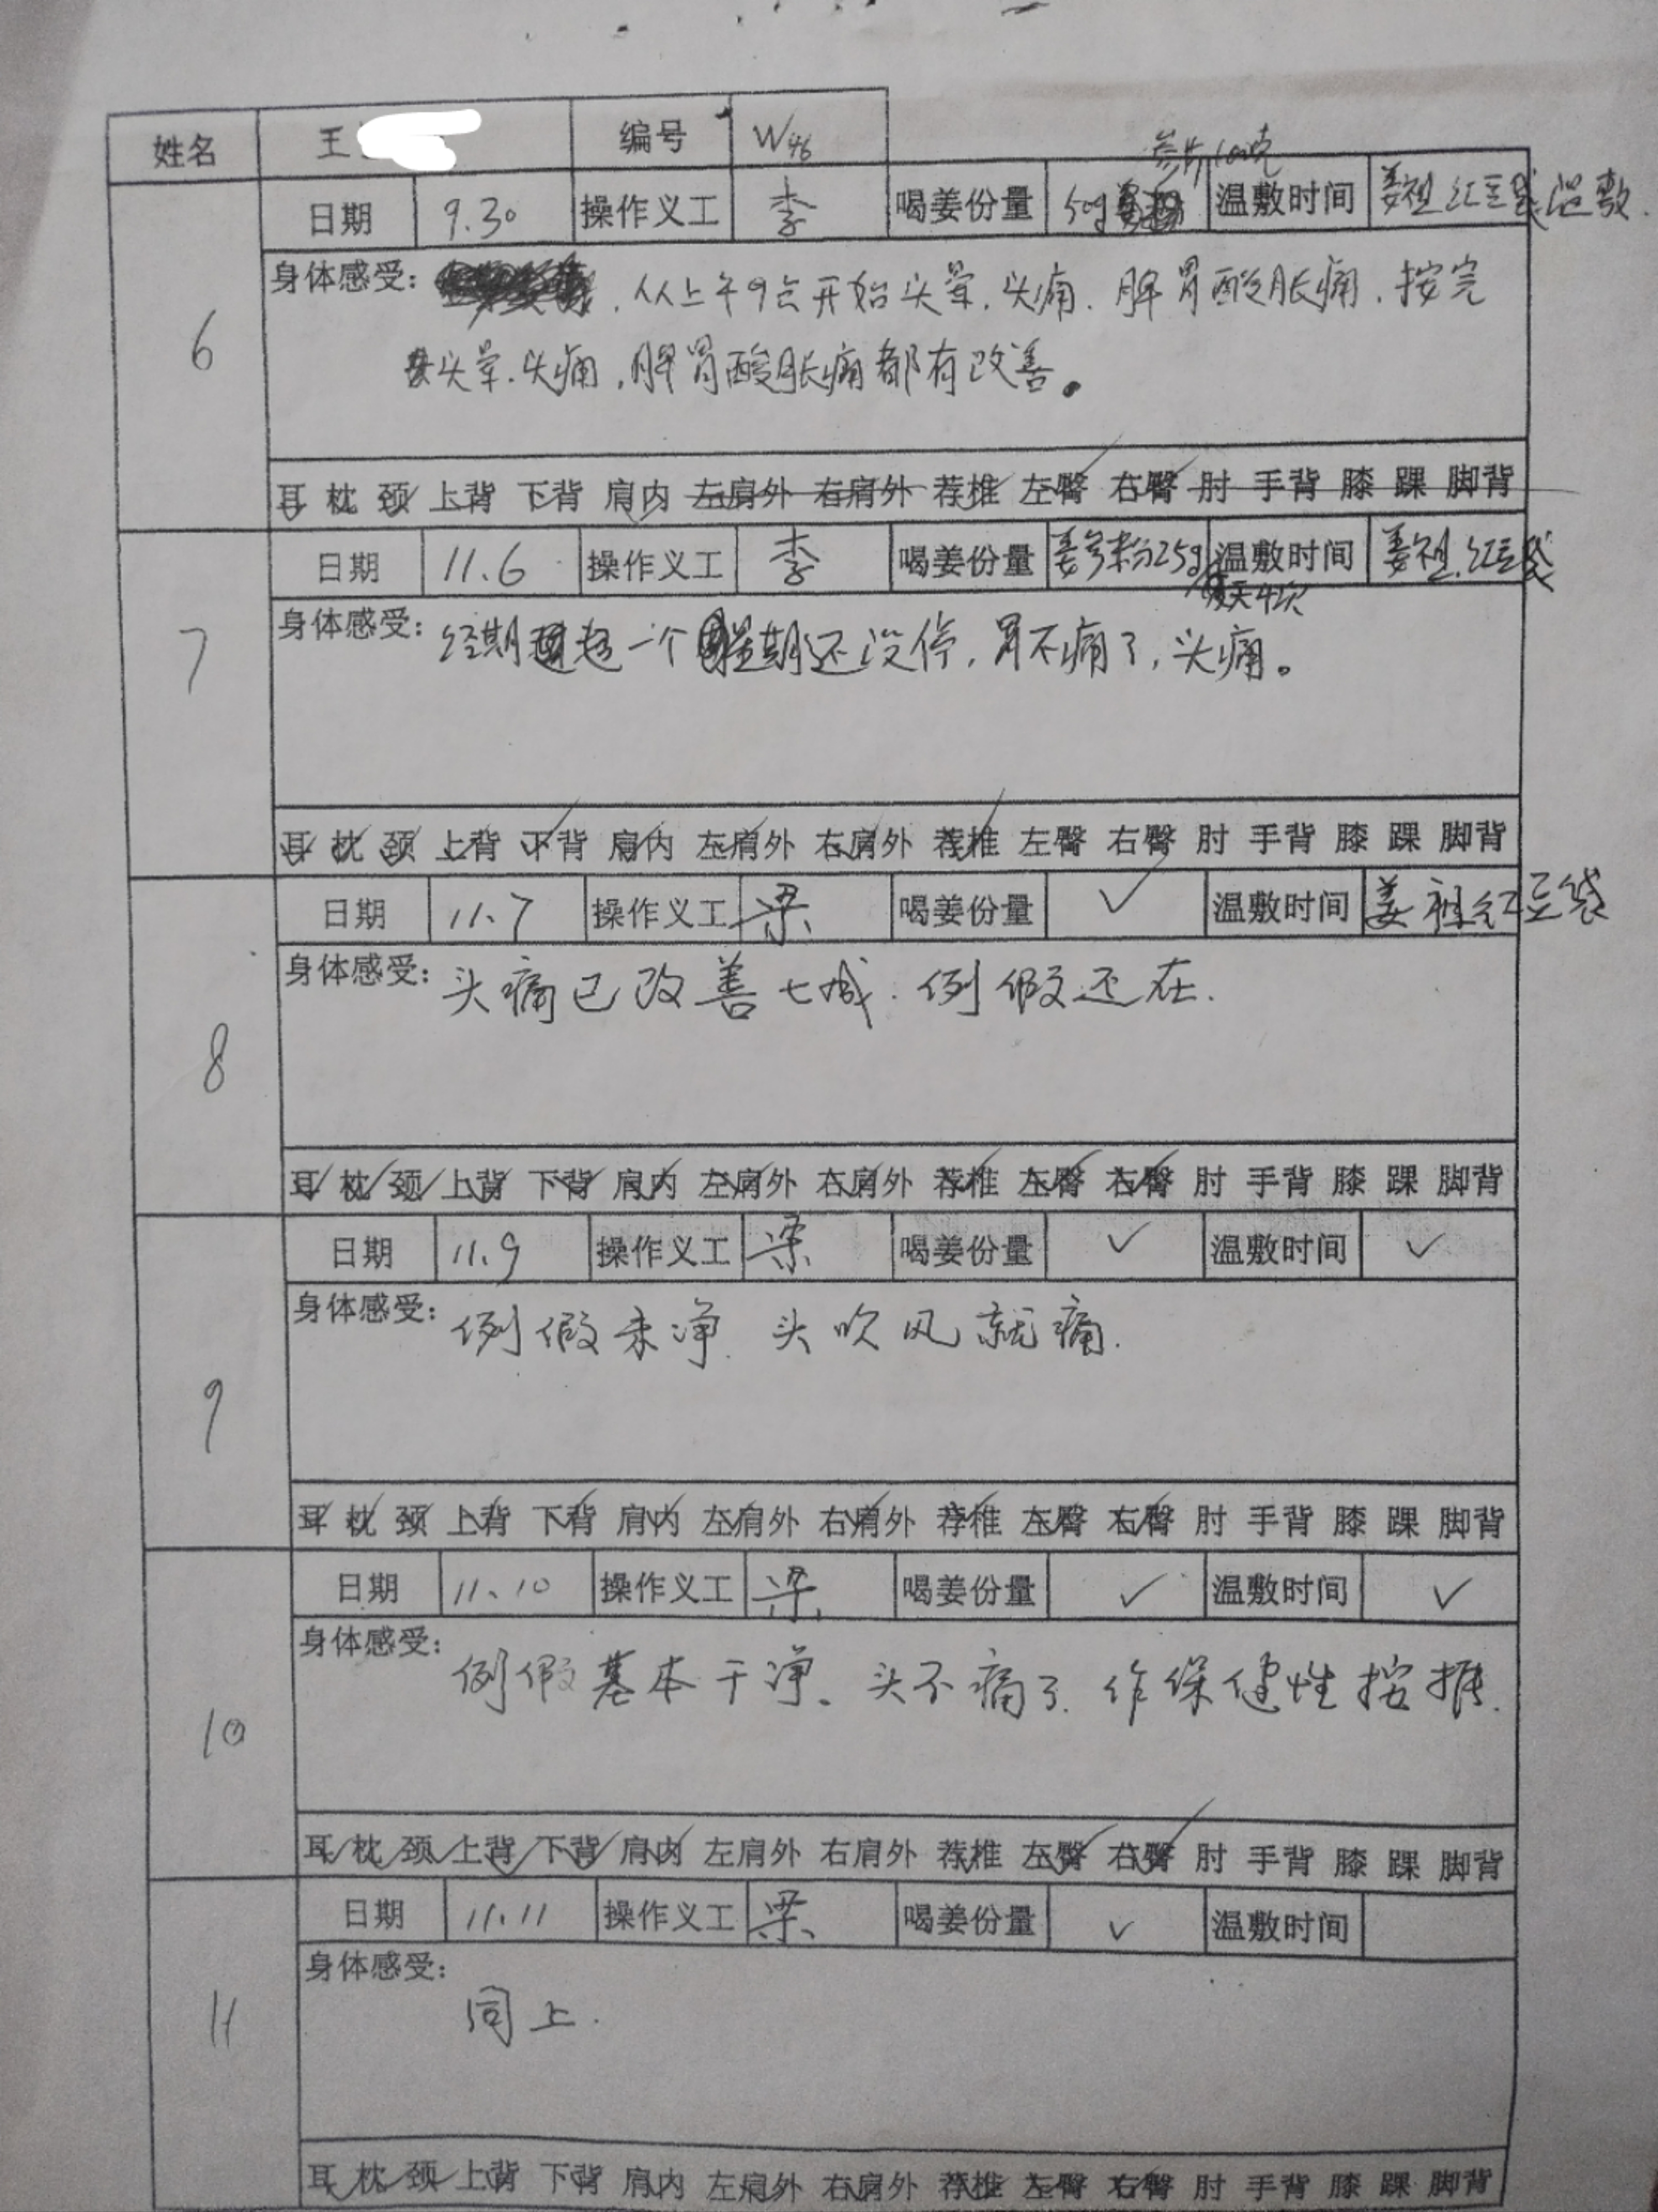 姓名 王 编号 W46
参片100克
日期 9.30 操作义工 李 喝姜份量 50g 温敷时间 姜祖红豆袋温敷.
6
身体感受: 从上午9点开始头晕、头痛、脾胃酸胀痛、按完
头晕、头痛,脾胃酸胀痛都有改善。
耳 枕 颈 上背 下背 肩内 左肩外 右肩外 荐椎 左臀 右臀 肘 手背 膝 踝 脚背
7
日期 11.6 操作义工 李 喝姜份量 姜参粉25g 温敷时间 姜祖.红豆袋
每天4次
身体感受: 经期超一个星期还没停,胃不痛了,头痛。
耳 枕 颈 上背 下背 肩内 左肩外 右肩外 荐椎 左臀 右臀 肘 手背 膝 踝 脚背
8
日期 11.7 操作义工 梁 喝姜份量 ✓ 温敷时间 姜祖红豆袋
身体感受: 头痛已改善七成.例假还在.
耳 枕 颈 上背 下背 肩内 左肩外 右肩外 荐椎 左臀 右臀 肘 手背 膝 踝 脚背
9
日期 11.9 操作义工 梁 喝姜份量 ✓ 温敷时间 ✓
身体感受: 例假未净.头吹风就痛.
耳 枕 颈 上背 下背 肩内 左肩外 右肩外 荐椎 左臀 右臀 肘 手背 膝 踝 脚背
10
日期 11.10 操作义工 梁 喝姜份量 ✓ 温敷时间 ✓
身体感受: 例假基本干净、头不痛了.作保健性按推.
耳 枕 颈 上背 下背 肩内 左肩外 右肩外 荐椎 左臀 右臀 肘 手背 膝 踝 脚背
11
日期 11.11 操作义工 梁 喝姜份量 ✓ 温敷时间
身体感受: 同上.
耳 枕 颈 上背 下背 肩内 左肩外 右肩外 荐椎 左臀 右臀 肘 手背 膝 踝 脚背